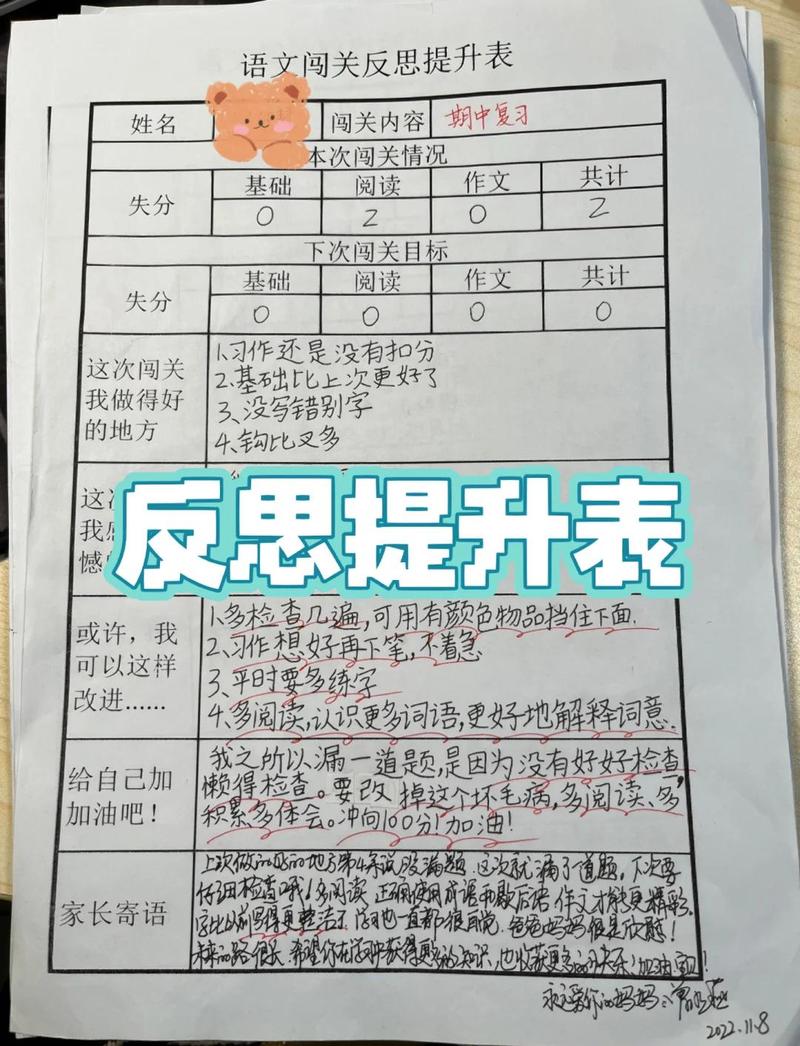 语文闯关反思提升表
姓名 闯关内容 期中复习
本次闯关情况
失分 基础 阅读 作文 共计
0 2 0 2
下次闯关目标
失分 基础 阅读 作文 共计
0 0 0 0
这次闯关
我做得好
的地方
1.习作还是没有扣分
2.基础比上次更好了
3、没写错别字
4、钩比叉多
这
我
憾
反思提升表
或许，我
可以这样
改进……
1.多检查几遍,可用有颜色物品挡住下面.
2、习作想好再下笔,不着急
3、平时要多练字
4、多阅读,认识更多词语,更好地解释词意.
给自己加
加油吧！
我之所以漏一道题,是因为没有好好检查,
懒得检查。要改掉这个坏毛病,多阅读、多
积累多体会。冲向100分!加油!
家长寄语
上次做的好的地方第4条说没漏题,这次就漏了一道题,下次要
仔细检查哦!多阅读,正确使用成语和歇后语,作文才能更精彩.
字比以前写得更整洁了,爸爸妈妈很是欣慰!
未来的路很长,希望你在学习中获得更多的知识,也收获更多的快乐!加油
永远爱你的妈妈:
2022.11.8